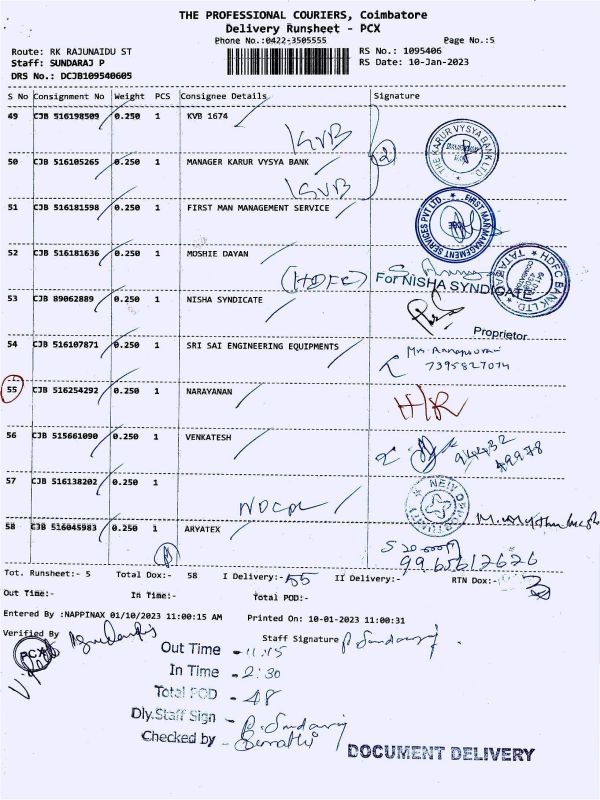 THE PROFESSIONAL COURIERS, Coimbatore
Delivery Runsheet - PCX
Phone No.:0422-3505555 Page No.:5
Route: RK RAJUNAIDU ST RS No.: 1095406
Staff: SUNDARAJ P RS Date: 10-Jan-2023
DRS No.: DCJB109540605
S No Consignment No Weight PCS Consignee Details Signature
49 CJB 516198509 0.250 1 KVB 1674
KVB
THE KARUR VYSYA BANK LTD
50 CJB 516105265 0.250 1 MANAGER KARUR VYSYA BANK
KVB
51 CJB 516181598 0.250 1 FIRST MAN MANAGEMENT SERVICE
FIRST MAN MANAGEMENT SERVICES PVT LTD
52 CJB 516181636 0.250 1 MOSHIE DAYAN
(HDFC)
HDFC BANK LTD
For NISHA SYNDICATE
53 CJB 89062889 0.250 1 NISHA SYNDICATE
Proprietor
54 CJB 516107871 0.250 1 SRI SAI ENGINEERING EQUIPMENTS
7395827074
55 CJB 516254292 0.250 1 NARAYANAN
H/R
56 CJB 515661090 0.250 1 VENKATESH
57 CJB 516138202 0.250 1
NDCPL
58 CJB 516045983 0.250 1 ARYATEX
9965612626
Tot. Runsheet:- 5 Total Dox:- 58 I Delivery:- 55 II Delivery:- RTN Dox:- 3
Out Time:- In Time:- Total POD:-
Entered By :NAPPINAX 01/10/2023 11:00:15 AM Printed On: 10-01-2023 11:00:31
Verified By Staff Signature P. Sundaraj
PCX
Out Time - 11:15
In Time - 2:30
Total POD - 48
Dly.Staff Sign - P. Sundaraj
Checked by -
DOCUMENT DELIVERY